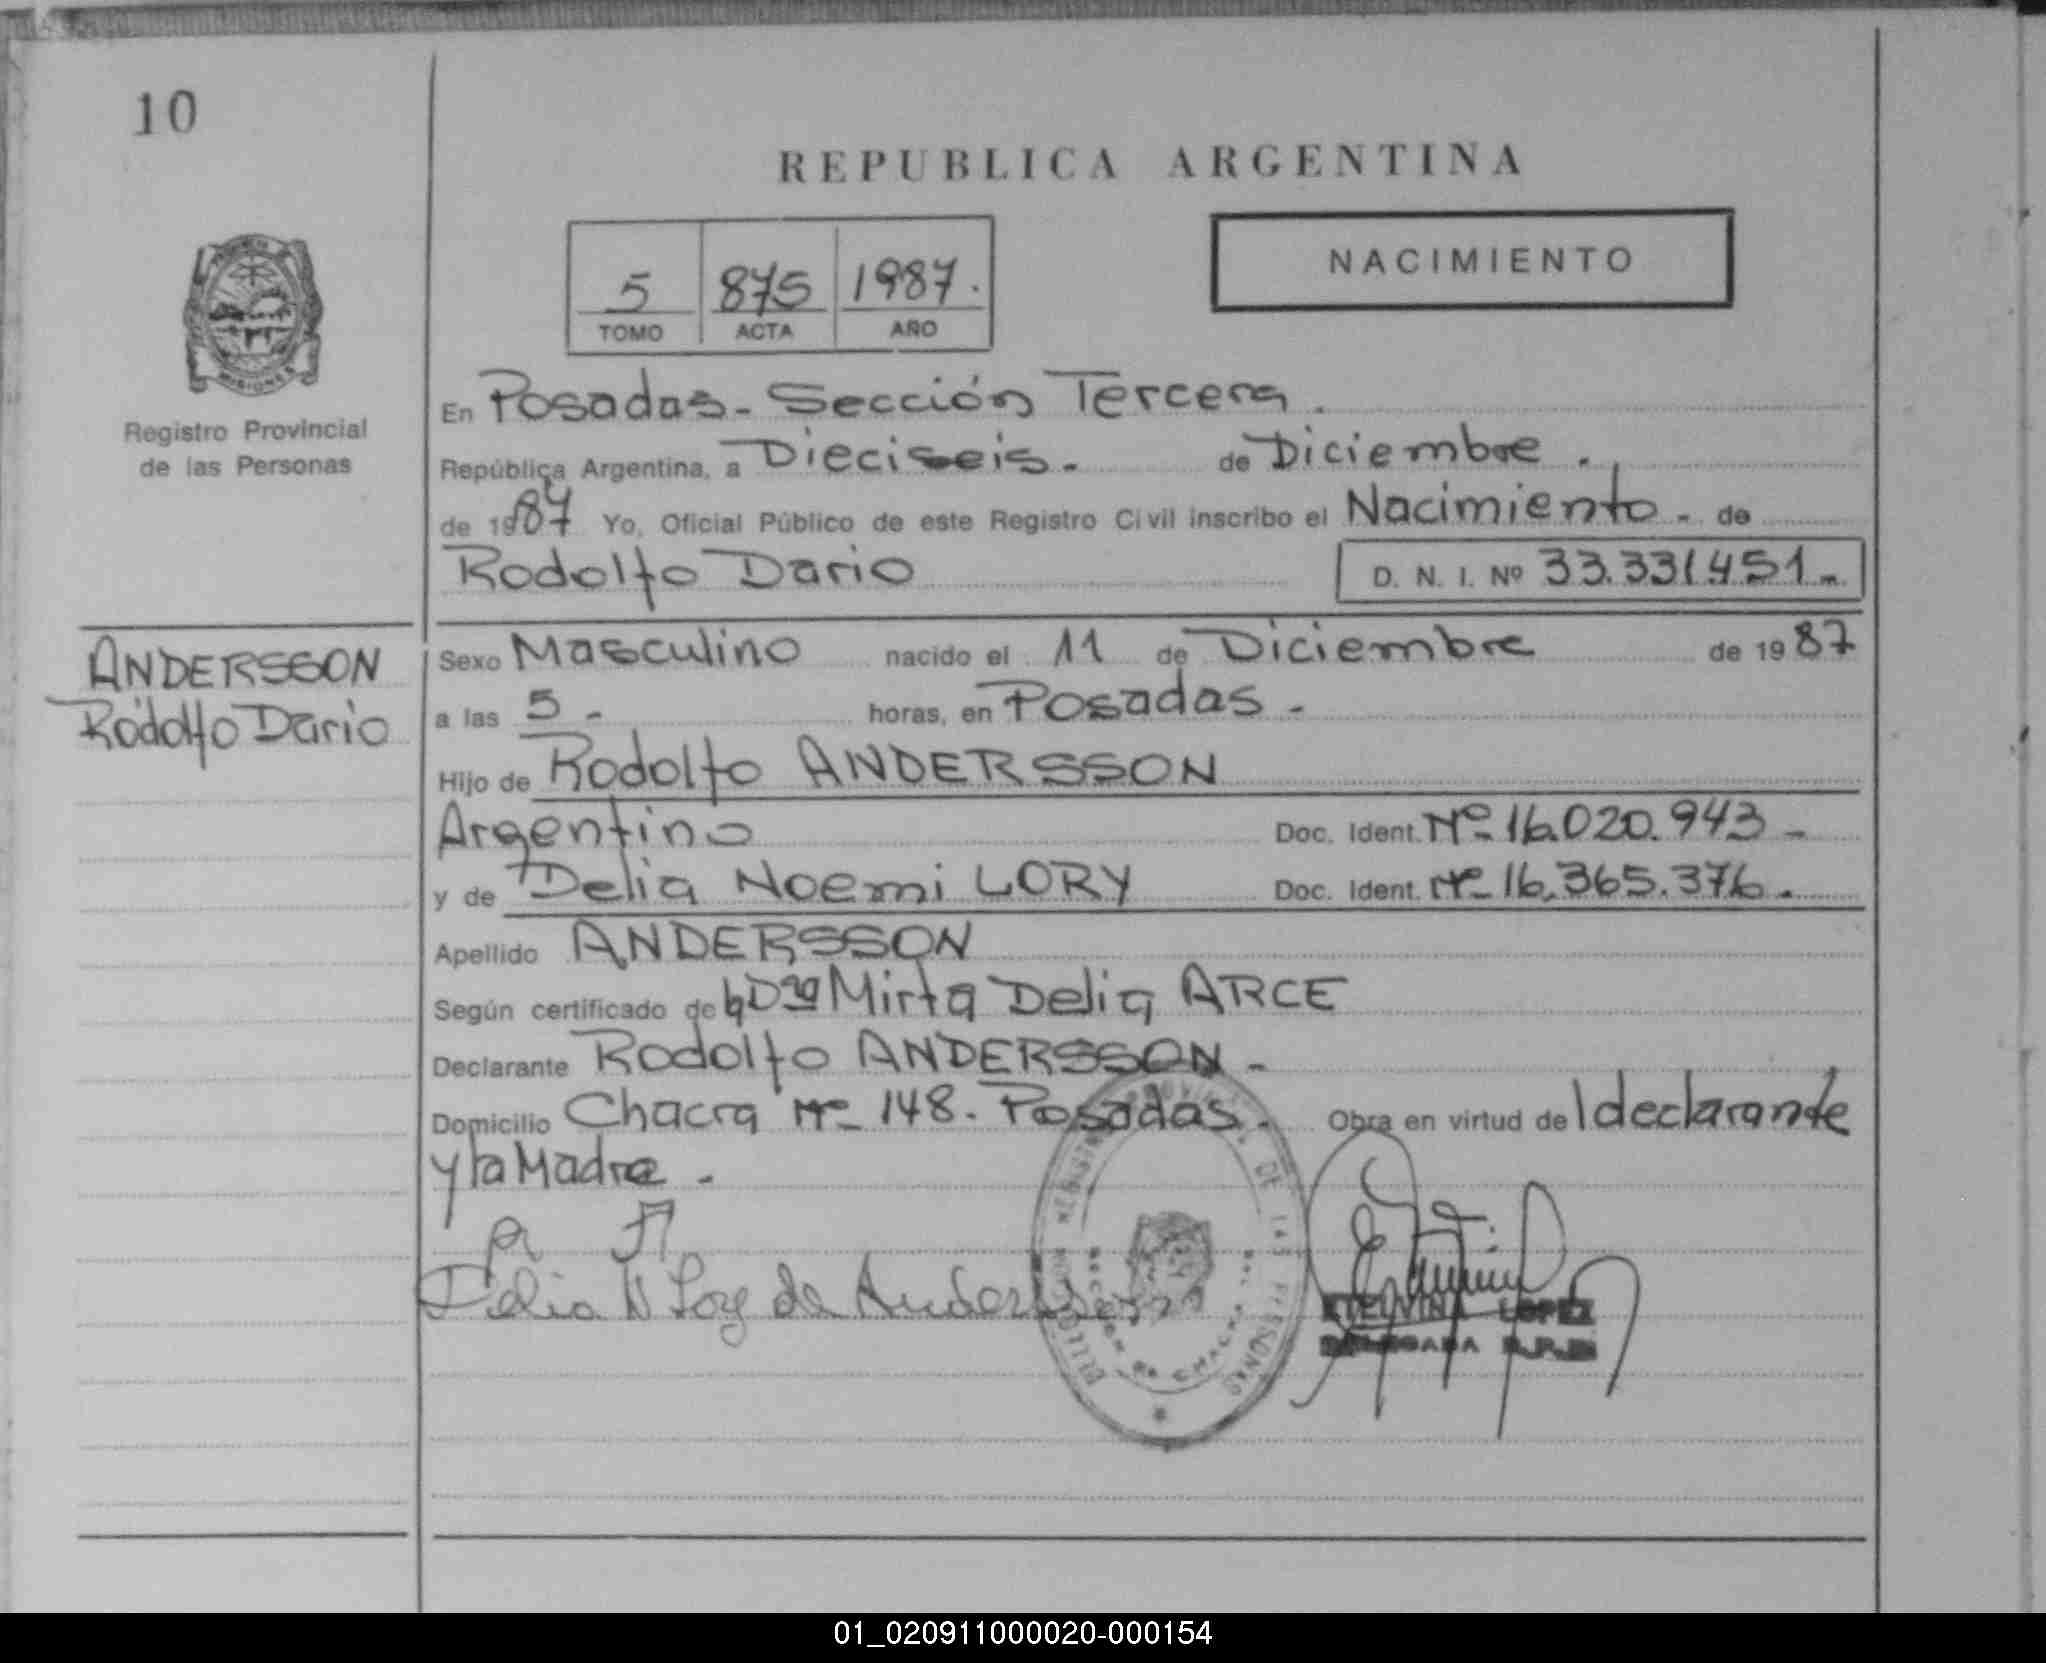 10
REPUBLICA ARGENTINA
NACIMIENTO
5 875 1987.
TOMO ACTA AÑO
MISIONES
Registro Provincial
de las Personas
En Posadas - Sección Tercera.
República Argentina, a Dieciseis. de Diciembre.
de 1987 Yo, Oficial Público de este Registro Civil inscribo el Nacimiento - de
Rodolfo Dario D. N. I. Nº 33.331.451 -
ANDERSSON
Rodolfo Dario
Sexo Masculino nacido el 11 de Diciembre de 1987
a las 5 - horas, en Posadas -
Hijo de Rodolfo ANDERSSON
Argentino Doc. Ident. Nº 16.020.943 -
y de Delia Noemi LORY Doc. Ident. Nº 16.365.376.
Apellido ANDERSSON
Según certificado de la Dra Mirta Delia ARCE
Declarante Rodolfo ANDERSSON -
Domicilio Chacra Nº 148. Posadas. Obra en virtud de l declarante
y la Madre -
Delia N Lory de Andersson
REGISTRO PROVINCIAL DE LAS PERSONAS
ETELVINA LOPEZ
DELEGADA R.P.P.
01_020911000020-000154